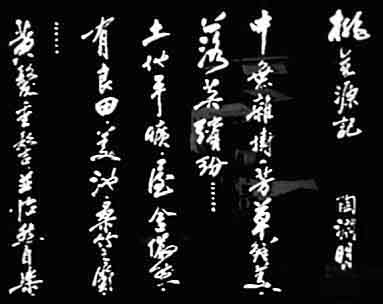 桃花源記 陶淵明
中無雜樹芳草鮮美
落英繽紛……
土地平曠屋舍儼然
有良田美池桑竹之屬
……
黃髮垂髫並怡然自樂